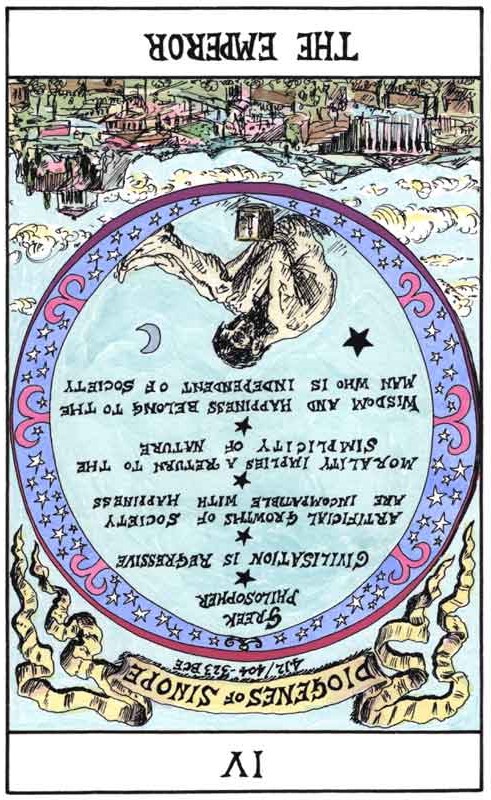 IV
DIOGENES OF SINOPE
412/404-323 BCE
GREEK
PHILOSOPHER
CIVILISATION IS REGRESSIVE
ARTIFICIAL GROWTHS OF SOCIETY
ARE INCOMPATIBLE WITH HAPPINESS
MORALITY IMPLIES A RETURN TO THE
SIMPLICITY OF NATURE
WISDOM AND HAPPINESS BELONG TO THE
MAN WHO IS INDEPENDENT OF SOCIETY
THE EMPEROR